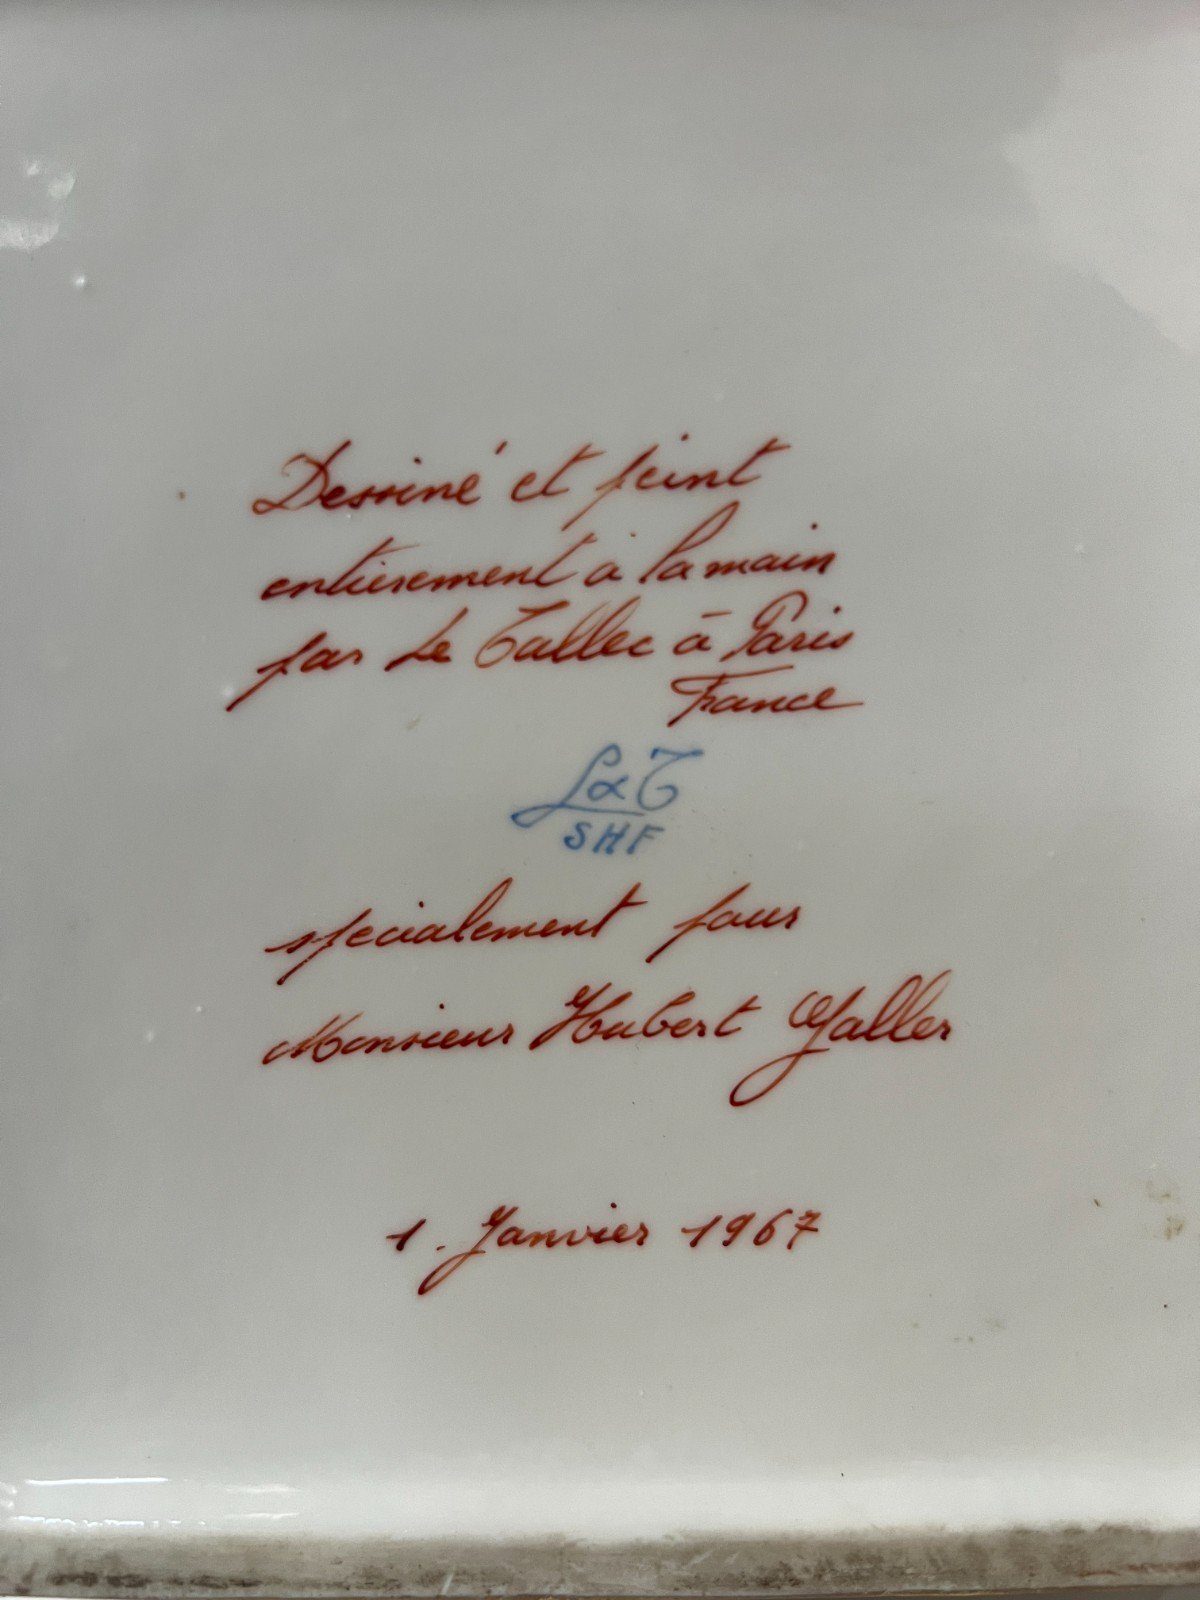 Dessiné et peint
entièrement à la main
par Le Tallec à Paris
France
L & T
SHF
spécialement pour
Monsieur Hubert
1. Janvier 1967